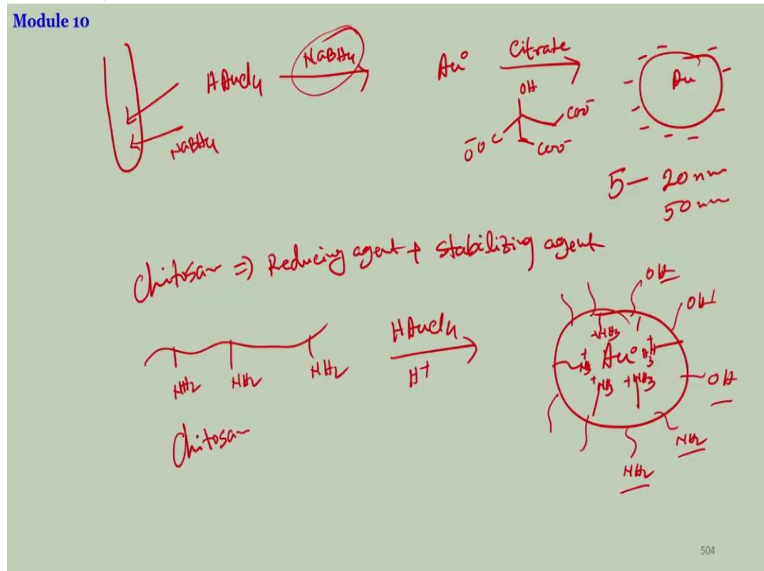 Module 10
HAuCl4 NaBH4 Au° Citrate
NaBH4
OH
COO⁻
⁻OOC
COO⁻
Au
5 – 20 nm
50 nm
Chitosan ⇒ Reducing agent + stabilizing agent
NH2 NH2 NH2
Chitosan
HAuCl4
H+
OH
OH
+NH3
Au°
+NH3 +NH3
OH
NH2
NH2
504